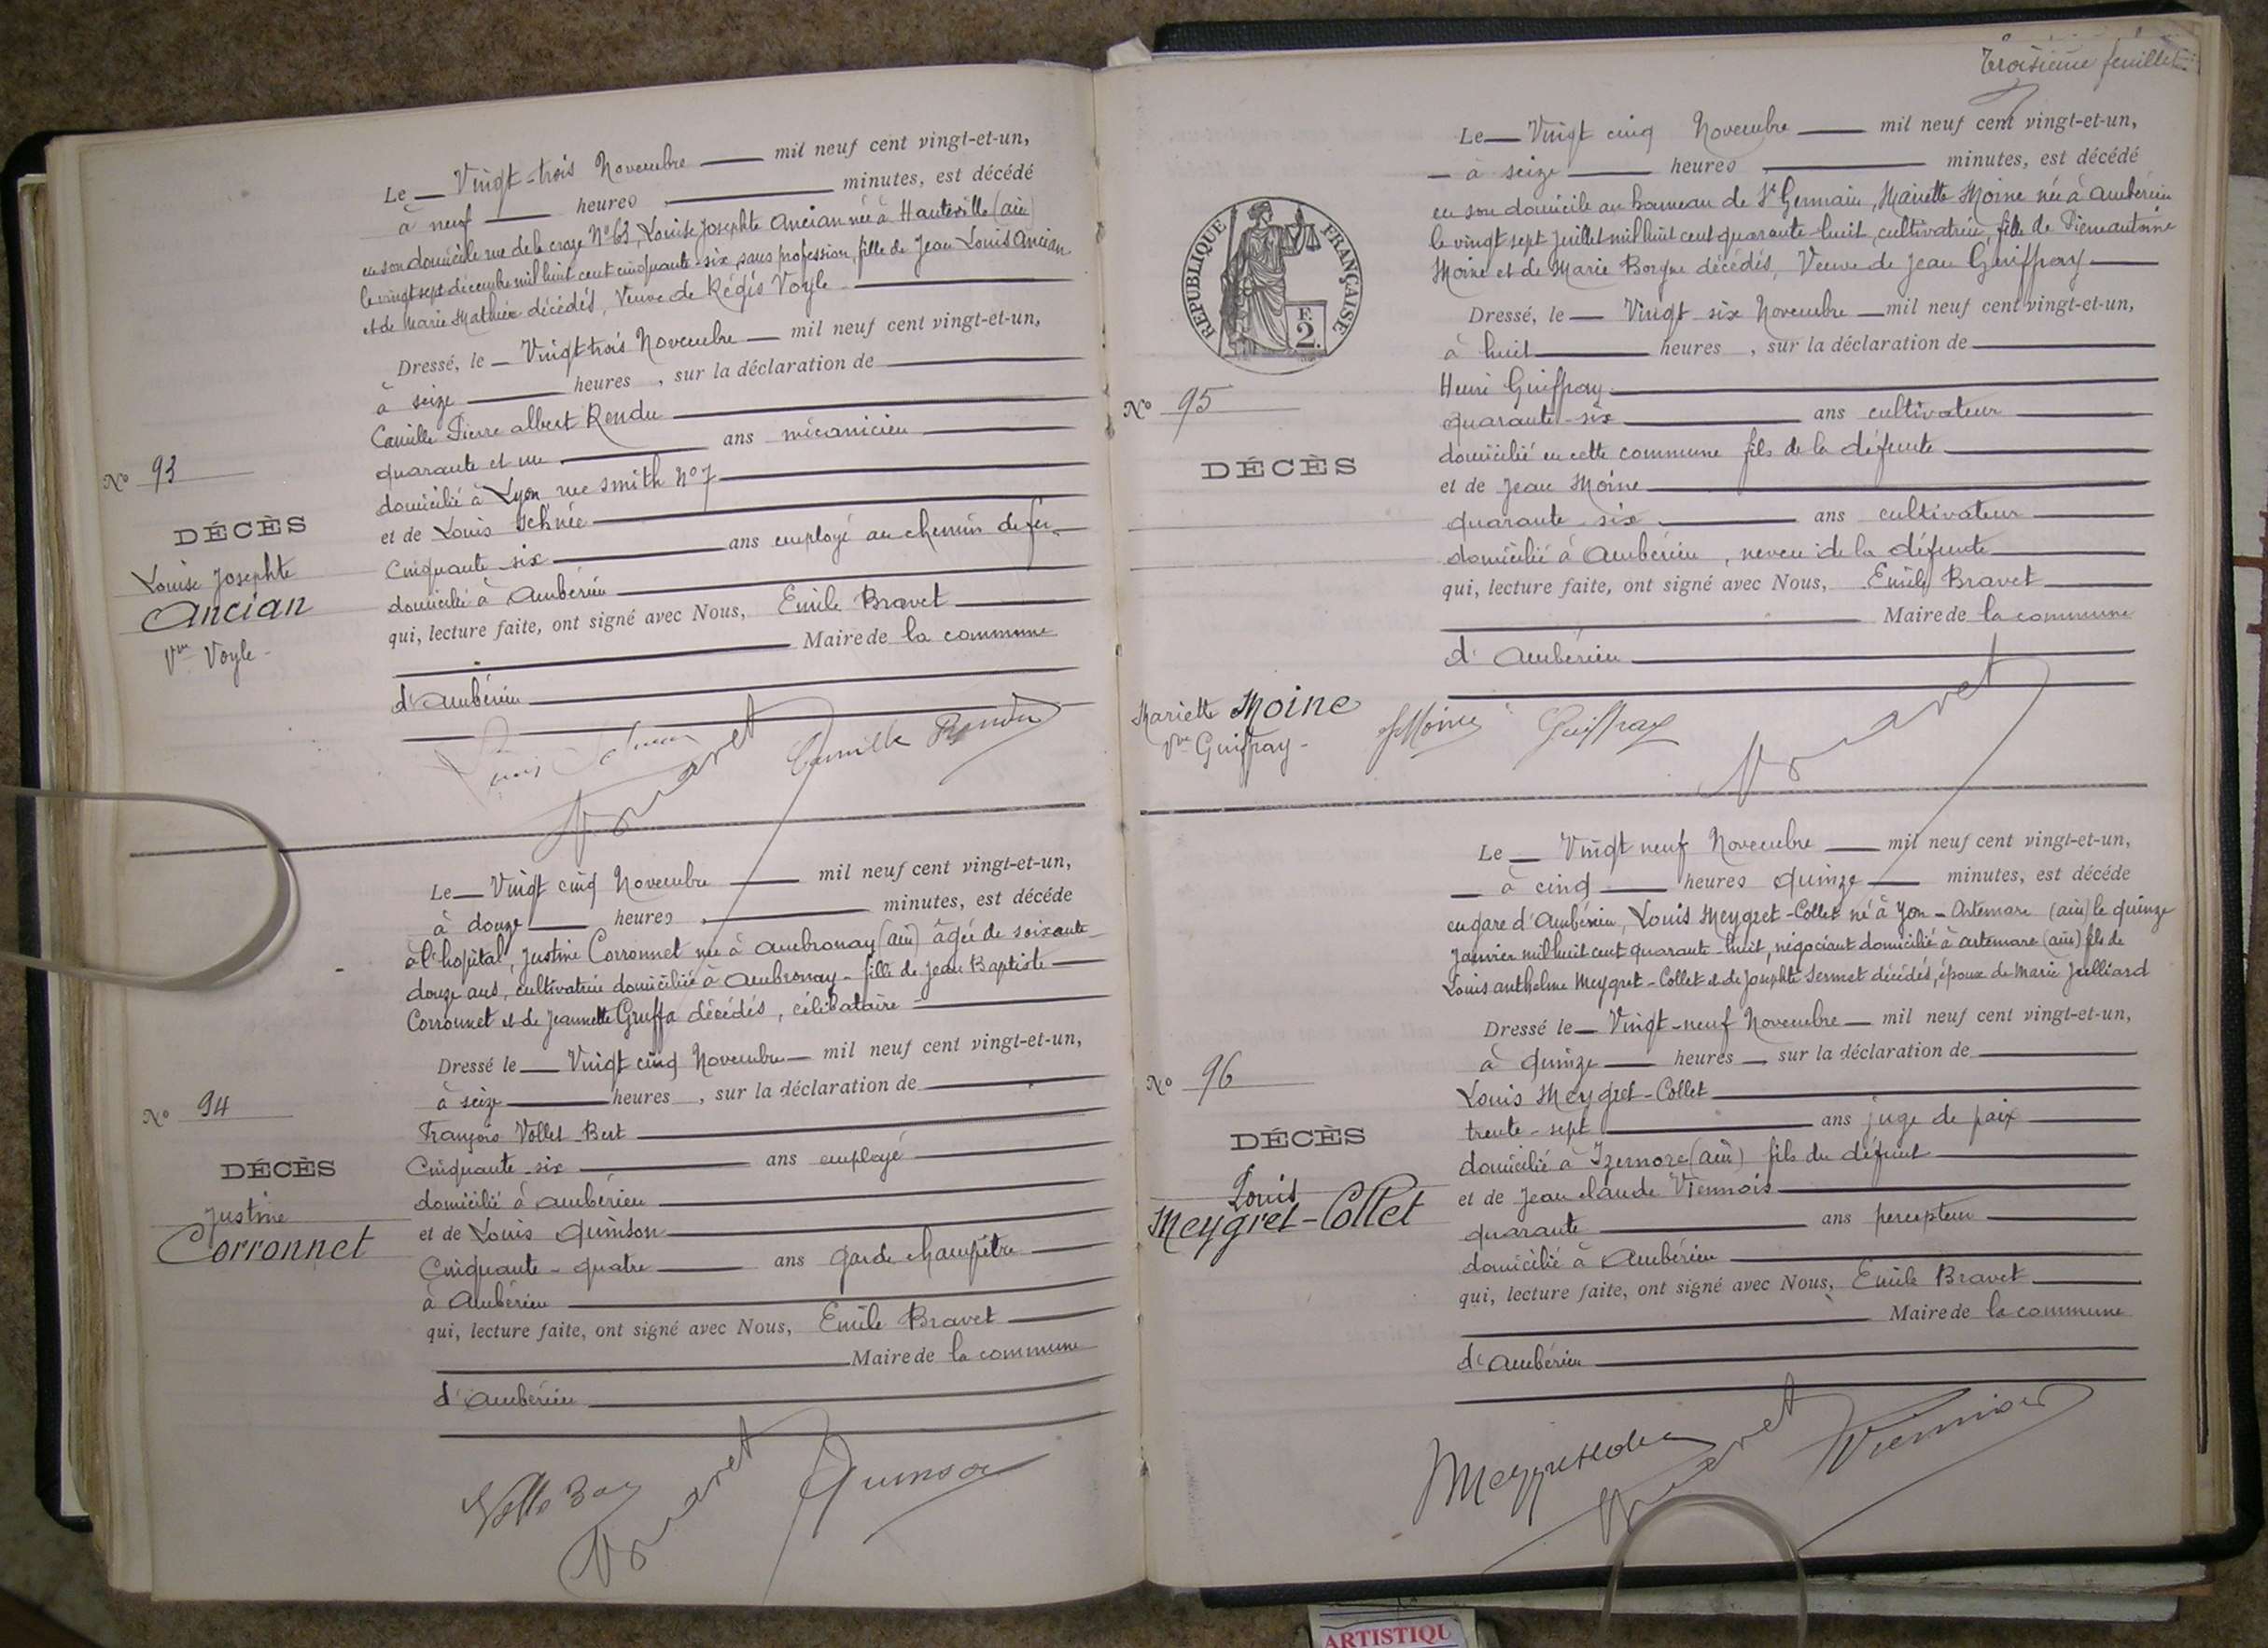 Le Vingt-trois Novembre mil neuf cent vingt-et-un,
à neuf heures minutes, est décédé
en son domicile rue de la croze N° 63, Louise Josephte Ancian née à Hauteville (ain)
le vingt sept décembre mil huit cent cinquante-six, sans profession, fille de Jean Louis Ancian
et de Marie Mathieu décédés, Veuve de Régis Voyle
Dressé, le Vingt trois Novembre mil neuf cent vingt-et-un,
à seize heures, sur la déclaration de
Camille Pierre albert Rendu
quarante et un ans mécanicien
domicilié à Lyon rue Smith N° 7
et de Louis Schnée
Cinquante-six ans employé au chemin de fer
domicilié à Ambérieu
qui, lecture faite, ont signé avec Nous, Emile Bravet
Maire de la commune
d'Ambérieu
N° 93
DÉCÈS
Louise Josephte
Ancian
Vve Voyle
Bravet
Camille Rendu
Le Vingt cinq Novembre mil neuf cent vingt-et-un,
à douze heures minutes, est décédé
à l'hopital, Justine Corronnet née à Ambronay (ain) âgée de soixante
douze ans, cultivatrice domiciliée à Ambronay - fille de Jean Baptiste
Corronnet et de Jeannette Gruffa décédés, célibataire
Dressé le Vingt cinq Novembre mil neuf cent vingt-et-un,
à seize heures, sur la déclaration de
François Vollet-Bert
Cinquante-six ans employé
domicilié à Ambérieu
et de Louis Quinson
Cinquante-quatre ans garde champêtre
à Ambérieu
qui, lecture faite, ont signé avec Nous, Emile Bravet
Maire de la commune
d'Ambérieu
N° 94
DÉCÈS
Justine
Corronnet
Bravet
Quinson
Troisième feuillet
Le Vingt cinq Novembre mil neuf cent vingt-et-un,
à seize heures minutes, est décédé
en son domicile au hameau de St Germain, Mariette Moine née à Ambérieu
le vingt sept juillet mil huit cent quarante-huit, cultivatrice, fille de Pierre antoine
Moine et de Marie Borgne décédés, Veuve de Jean Guiffray
Dressé, le Vingt-six Novembre mil neuf cent vingt-et-un,
à huit heures, sur la déclaration de
Henri Guiffray
quarante-six ans cultivateur
domicilié en cette commune fils de la défunte
et de Jean Moine
quarante-six ans cultivateur
domicilié à Ambérieu, neveu de la défunte
qui, lecture faite, ont signé avec Nous, Emile Bravet
Maire de la commune
d'Ambérieu
RÉPUBLIQUE FRANÇAISE
F.
2.
N° 95
DÉCÈS
Mariette Moine
Vve Guiffray
JMoine
Guiffray
Bravet
Le Vingt neuf Novembre mil neuf cent vingt-et-un,
à cinq heures quinze minutes, est décédé
en gare d'Ambérieu, Louis Meygret-Collet né à Yon-Artemare (ain) le quinze
Janvier mil huit cent quarante-huit, négociant domicilié à artemare (ain) fils de
Louis anthelme Meygret-Collet et de Josephte Sermet décédés, époux de Marie Julliard
Dressé le Vingt-neuf Novembre mil neuf cent vingt-et-un,
à quinze heures, sur la déclaration de
Louis Meygret-Collet
trente-sept ans juge de paix
domicilié à Izernore (ain) fils du défunt
et de Jean claude Viennois
quarante ans percepteur
domicilié à Ambérieu
qui, lecture faite, ont signé avec Nous, Emile Bravet
Maire de la commune
d'Ambérieu
N° 96
DÉCÈS
Louis
Meygret-Collet
Bravet
Viennois
ARTISTIQU